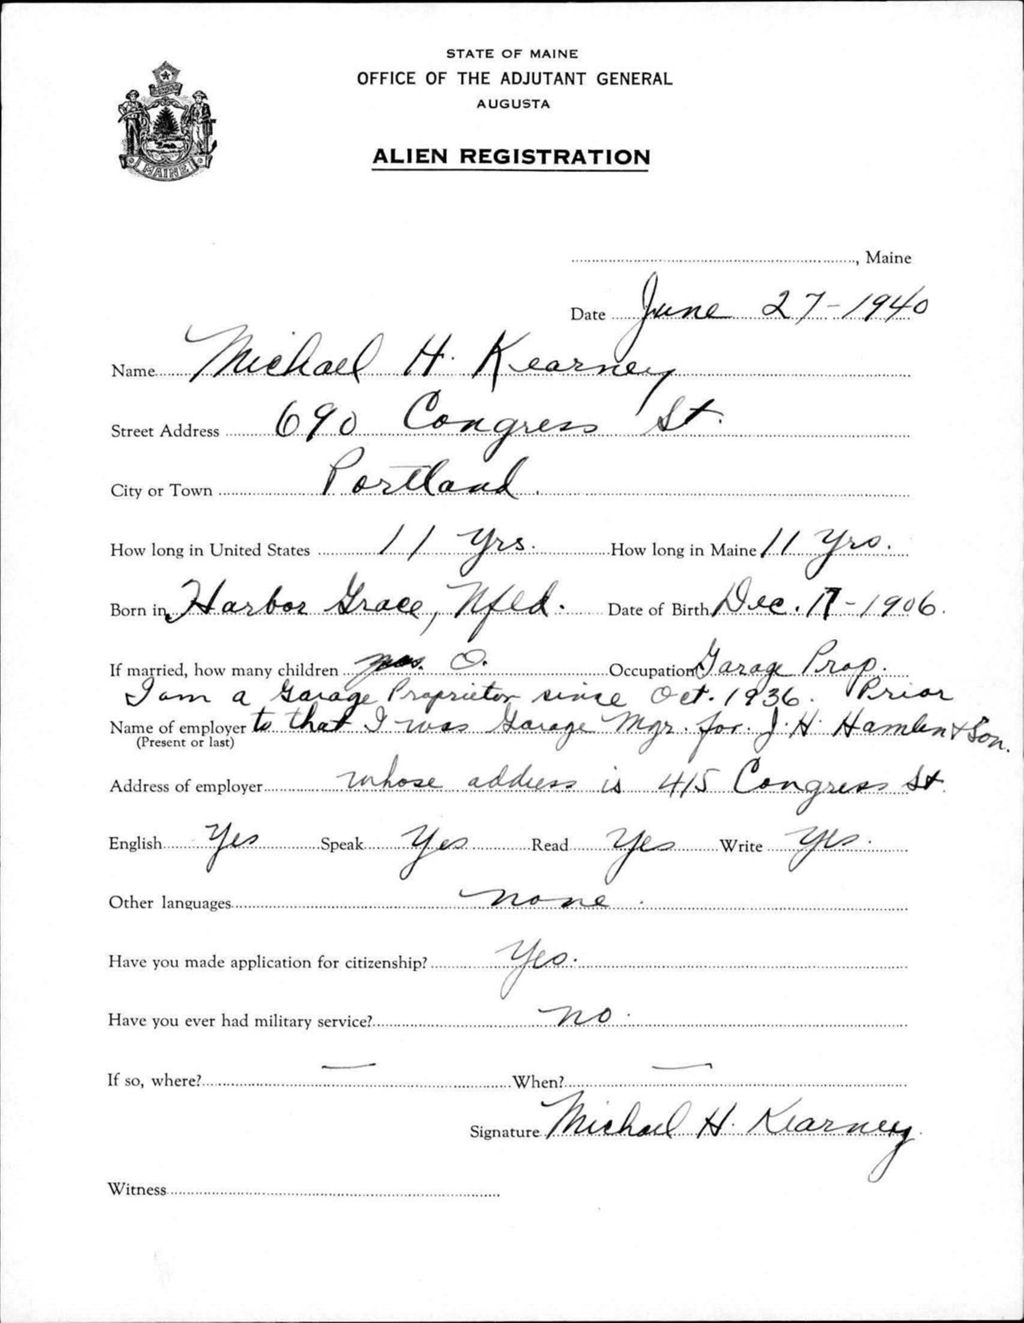 STATE OF MAINE
OFFICE OF THE ADJUTANT GENERAL
AUGUSTA
ALIEN REGISTRATION
MAINE
, Maine
Date June 27-1940
Name Michael H. Kearney
Street Address 690 Congress St.
City or Town Portland.
How long in United States 11 Yrs. How long in Maine 11 Yrs.
Born in Harbor Grace, Nfld. Date of Birth Dec. 17-1906.
If married, how many children O. Occupation Garage Prop.
I am a Garage Proprietor since Oct. 1936. Prior
Name of employer to that I was Garage Mgr. for J. H. Hamlen & Son.
(Present or last)
Address of employer whose address is 415 Congress St
English Yes Speak Yes Read Yes Write Yes.
Other languages none.
Have you made application for citizenship? Yes.
Have you ever had military service? no.
If so, where? — When? —
Signature Michael H. Kearney
Witness